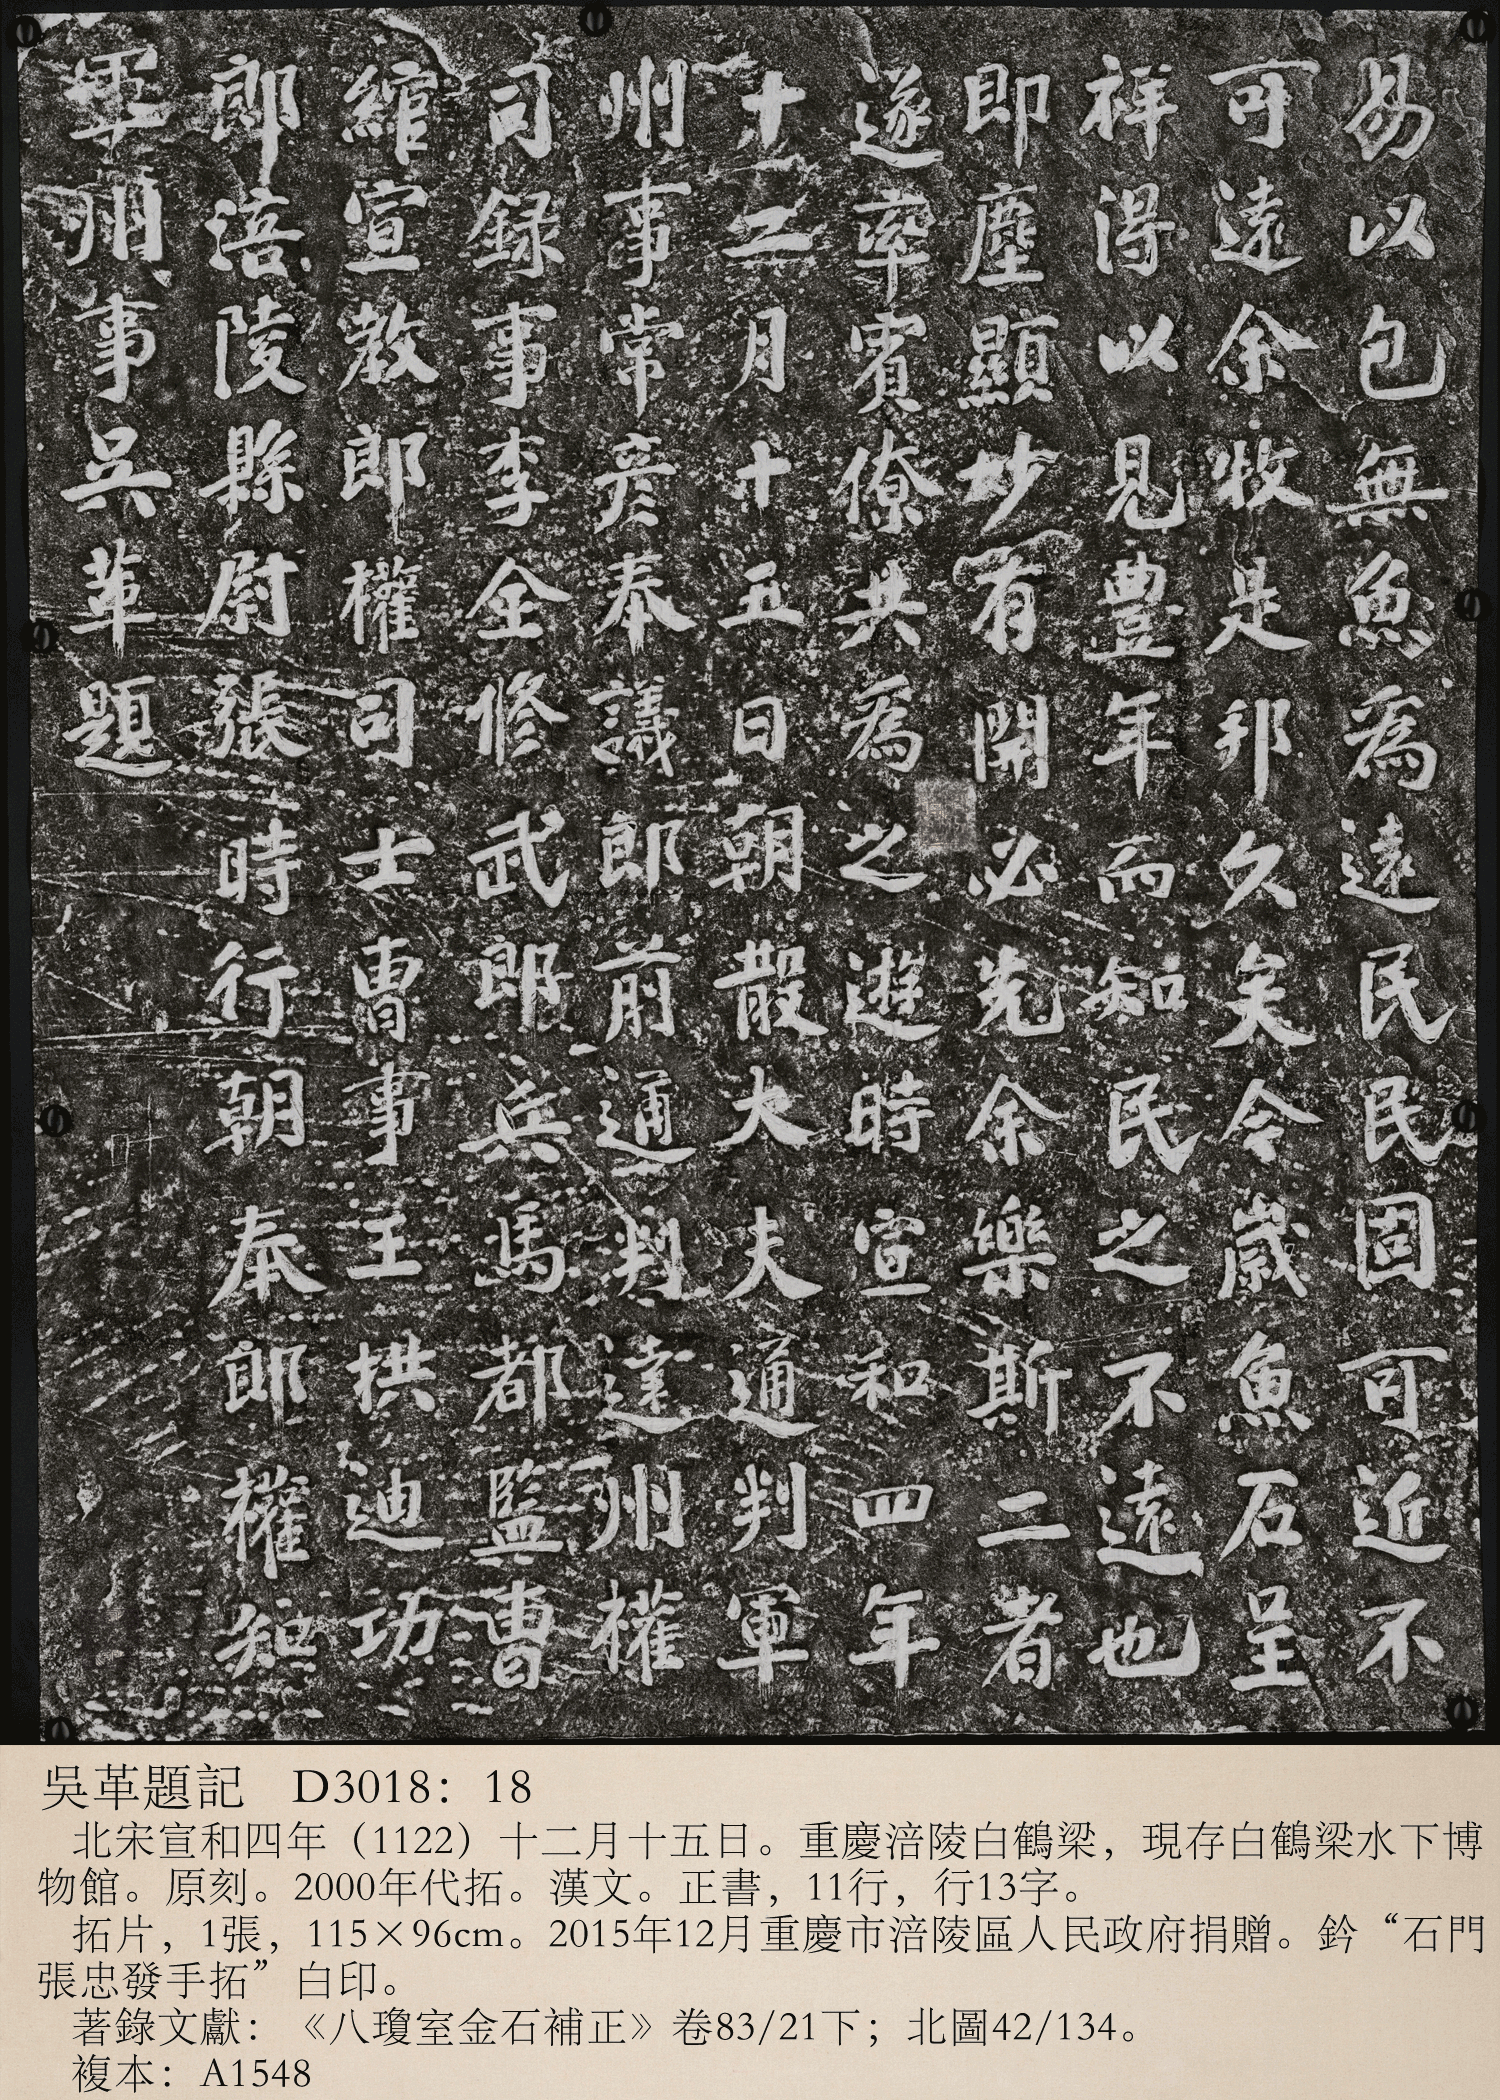 易以包無魚為遠民民固可近不
可遠余牧是邦久矣今歲魚石呈
祥得以見豐年而知民之不遠也
即塵顯妙有開必先余樂斯二者
遂率賓僚共為之遊時宣和四年
十二月十五日朝散大夫通判軍
州事常彥奉議郎前通判達州權
司録事李全修武郎兵馬都監曹
綰宣教郎權司士曹事王拱迪功
郎涪陵縣尉張時行朝奉郎權知
軍州事吳革題
吳革題記 D3018：18
北宋宣和四年（1122）十二月十五日。重慶涪陵白鶴梁，現存白鶴梁水下博
物館。原刻。2000年代拓。漢文。正書，11行，行13字。
拓片，1張，115×96cm。2015年12月重慶市涪陵區人民政府捐贈。鈐“石門
張忠發手拓”白印。
著錄文獻：《八瓊室金石補正》卷83/21下；北圖42/134。
複本：A1548